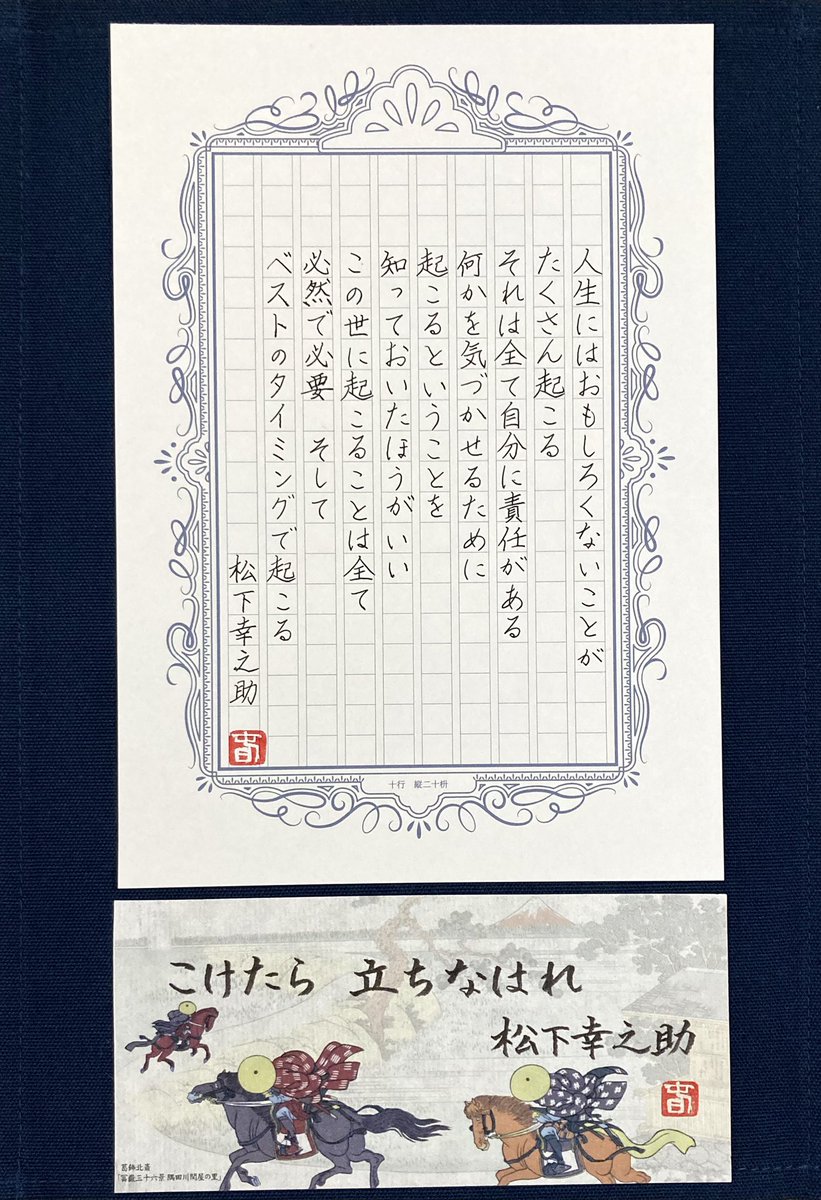 人生にはおもしろくないことが
たくさん起こる
それは全て自分に責任がある
何かを気づかせるために
起こるということを
知っておいたほうがいい
この世に起こることは全て
必然で必要　そして
ベストのタイミングで起こる
松下幸之助
十行　縦二十枡
こけたら 立ちなはれ
松下幸之助
葛飾北斎
「冨嶽三十六景 隅田川関屋の里」